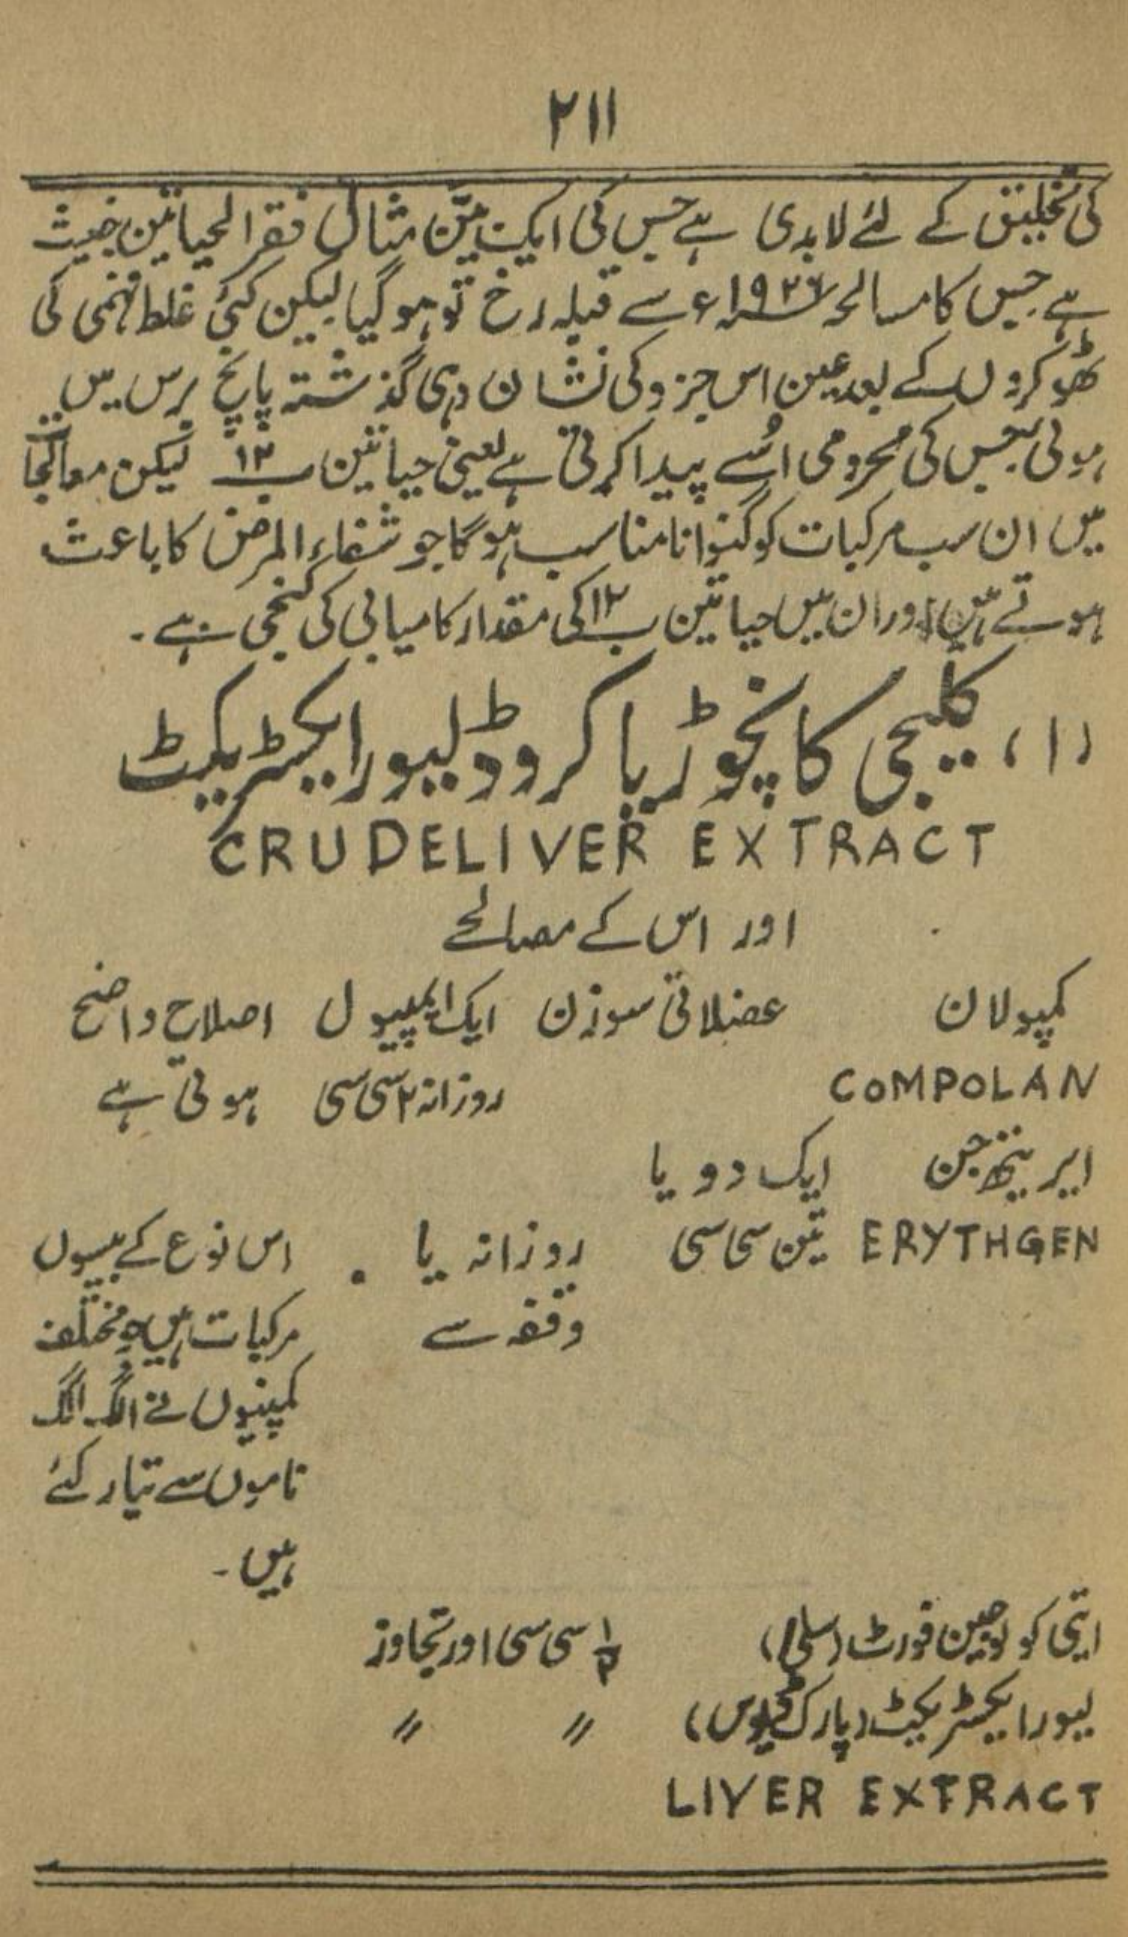 ۲۱۱
کی تخلیق کے لئے لابدی ہے جس کی ایک بیّن مثال فقر الحیاتین خبیث
ہے جس کا مسالحہ ۱۹۲۶ء سے قبلہ رخ تو ہو گیا لیکن کئی غلط فہمی کی
ٹھوکروں کے بعد عین اس جزو کی نشان دہی گذشتہ پانچ برس میں
ہوئی جس کی محرومی اُسے پیدا کرتی ہے یعنی حیاتین ب۱۲ لیکن معالجا
میں ان سب مرکبات کو گنوانا مناسب ہو گا جو شفاء المرض کا باعث
ہوتے ہیں اور ان میں حیاتین ب۱۲ کی مقدار کامیابی کی کنجی ہے۔
(۱) کلیجی کا نچوڑ یا کروڈ لیور ایکسٹریکٹ
CRUDELIVER EXTRACT
اور اس کے مصالحے
کمپولان عضلاتی سوزن ایک ایمپیول اصلاح واضح
COMPOLAN روزانہ ۲ سی سی ہوتی ہے
ایریتھجن ایک دو یا
ERYTHGEN تین سی سی روزانہ یا اس نوع کے بیسوں
وقفہ سے مرکبات ہیں جو مختلف
کمپنیوں نے الگ الگ
ناموں سے تیار کئے
ہیں۔
فورٹ ۱/۲ سی سی اور تجاوز
لیور ایکسٹریکٹ (پارک ڈیوس) 〃 〃
LIVER EXTRACT